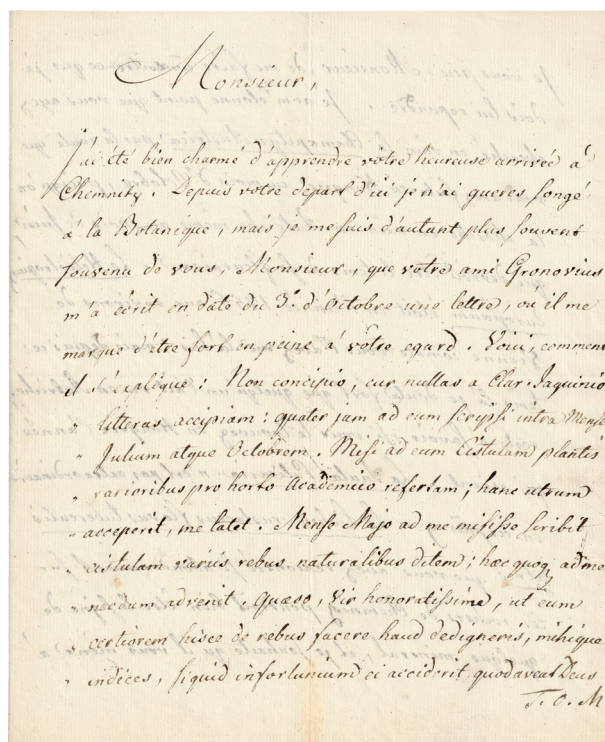 Monsieur,
j'ai été bien charmé d'apprendre vôtre heureuse arrivée à
Chemnitz. Depuis votre depart d'ici je n'ai gueres songé
à la Botanique, mais je me suis d'autant plus souvent
souvenu de vous, Monsieur, que vôtre ami Gronovius
m'a écrit en date du 3e d'Octobre une lettre, où il me
marque d'être fort en peine à vôtre egard. Voici, comment
il s'explique: Non concipio, cur nullas a Clar. Jaquinio
" litteras accipiam: quater jam ad eum scripsi intra Mensem
" Julium atque Octobrem. Misi ad eum Cistulam plantis
" rarioribus pro horto Academico refertam; hanc utrum
" acceperit, me latet. Mense Majo ad me misisse scribit
" cistulam variis rebus naturalibus ditem; hæc quoq, ad me
" necdum advenit. Quæso, Vir honoratissime, ut eum
" certiorem hisce de rebus facere haud dedigneris, mihique
" indices, siquid infortunium ei acciderit, quod aveat Deus
T. O. M